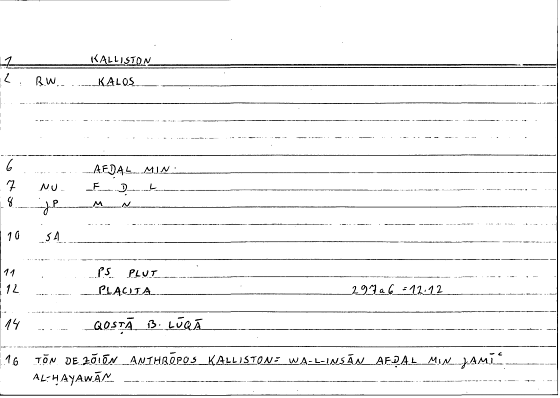 1 KALLISTON
2 RW KALOS
6 AFḌAL MIN
7 NU F Ḍ L
8 JP M N
10 SA
11 PS PLUT
12 PLACITA 297a6 = 12.12
14 QOSṬĀ B. LŪQĀ
16 TŌN DE ZŌIŌN ANTHRŌPOS KALLISTON = WA-L-INSĀN AFḌAL MIN JAMĪʿ
AL-ḤAYAWĀN